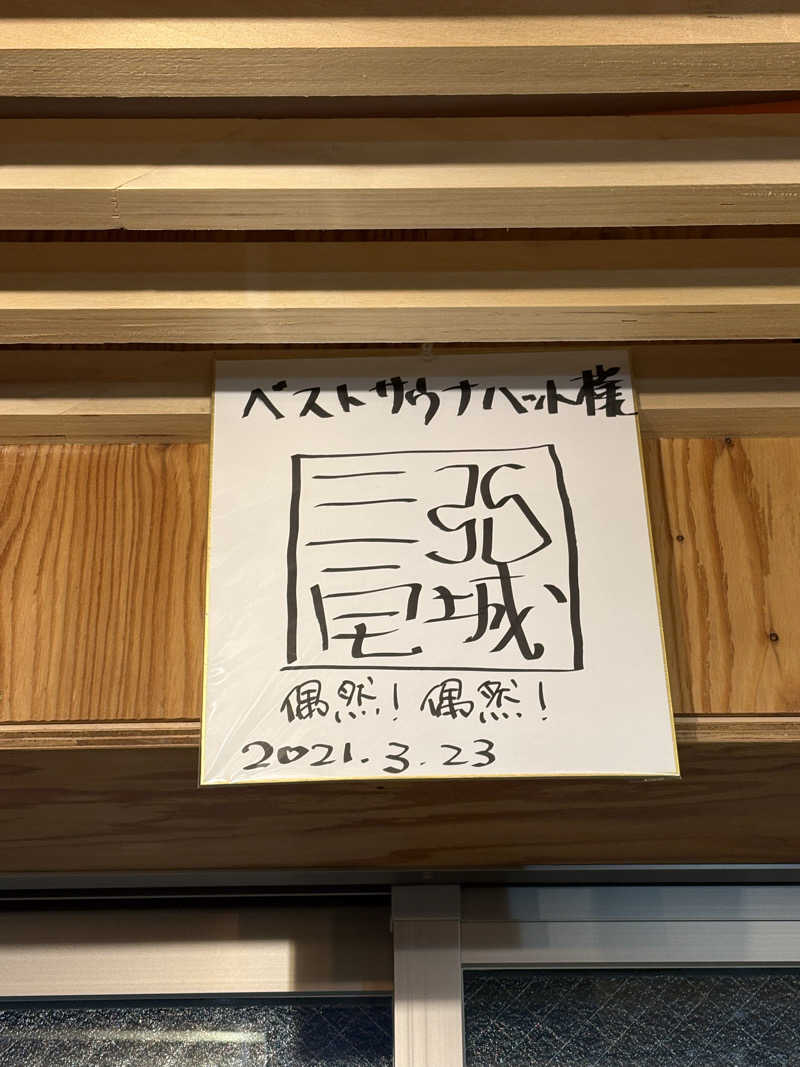 ベストサウナハット様
三宅弘城
偶然！偶然！
2021.3.23